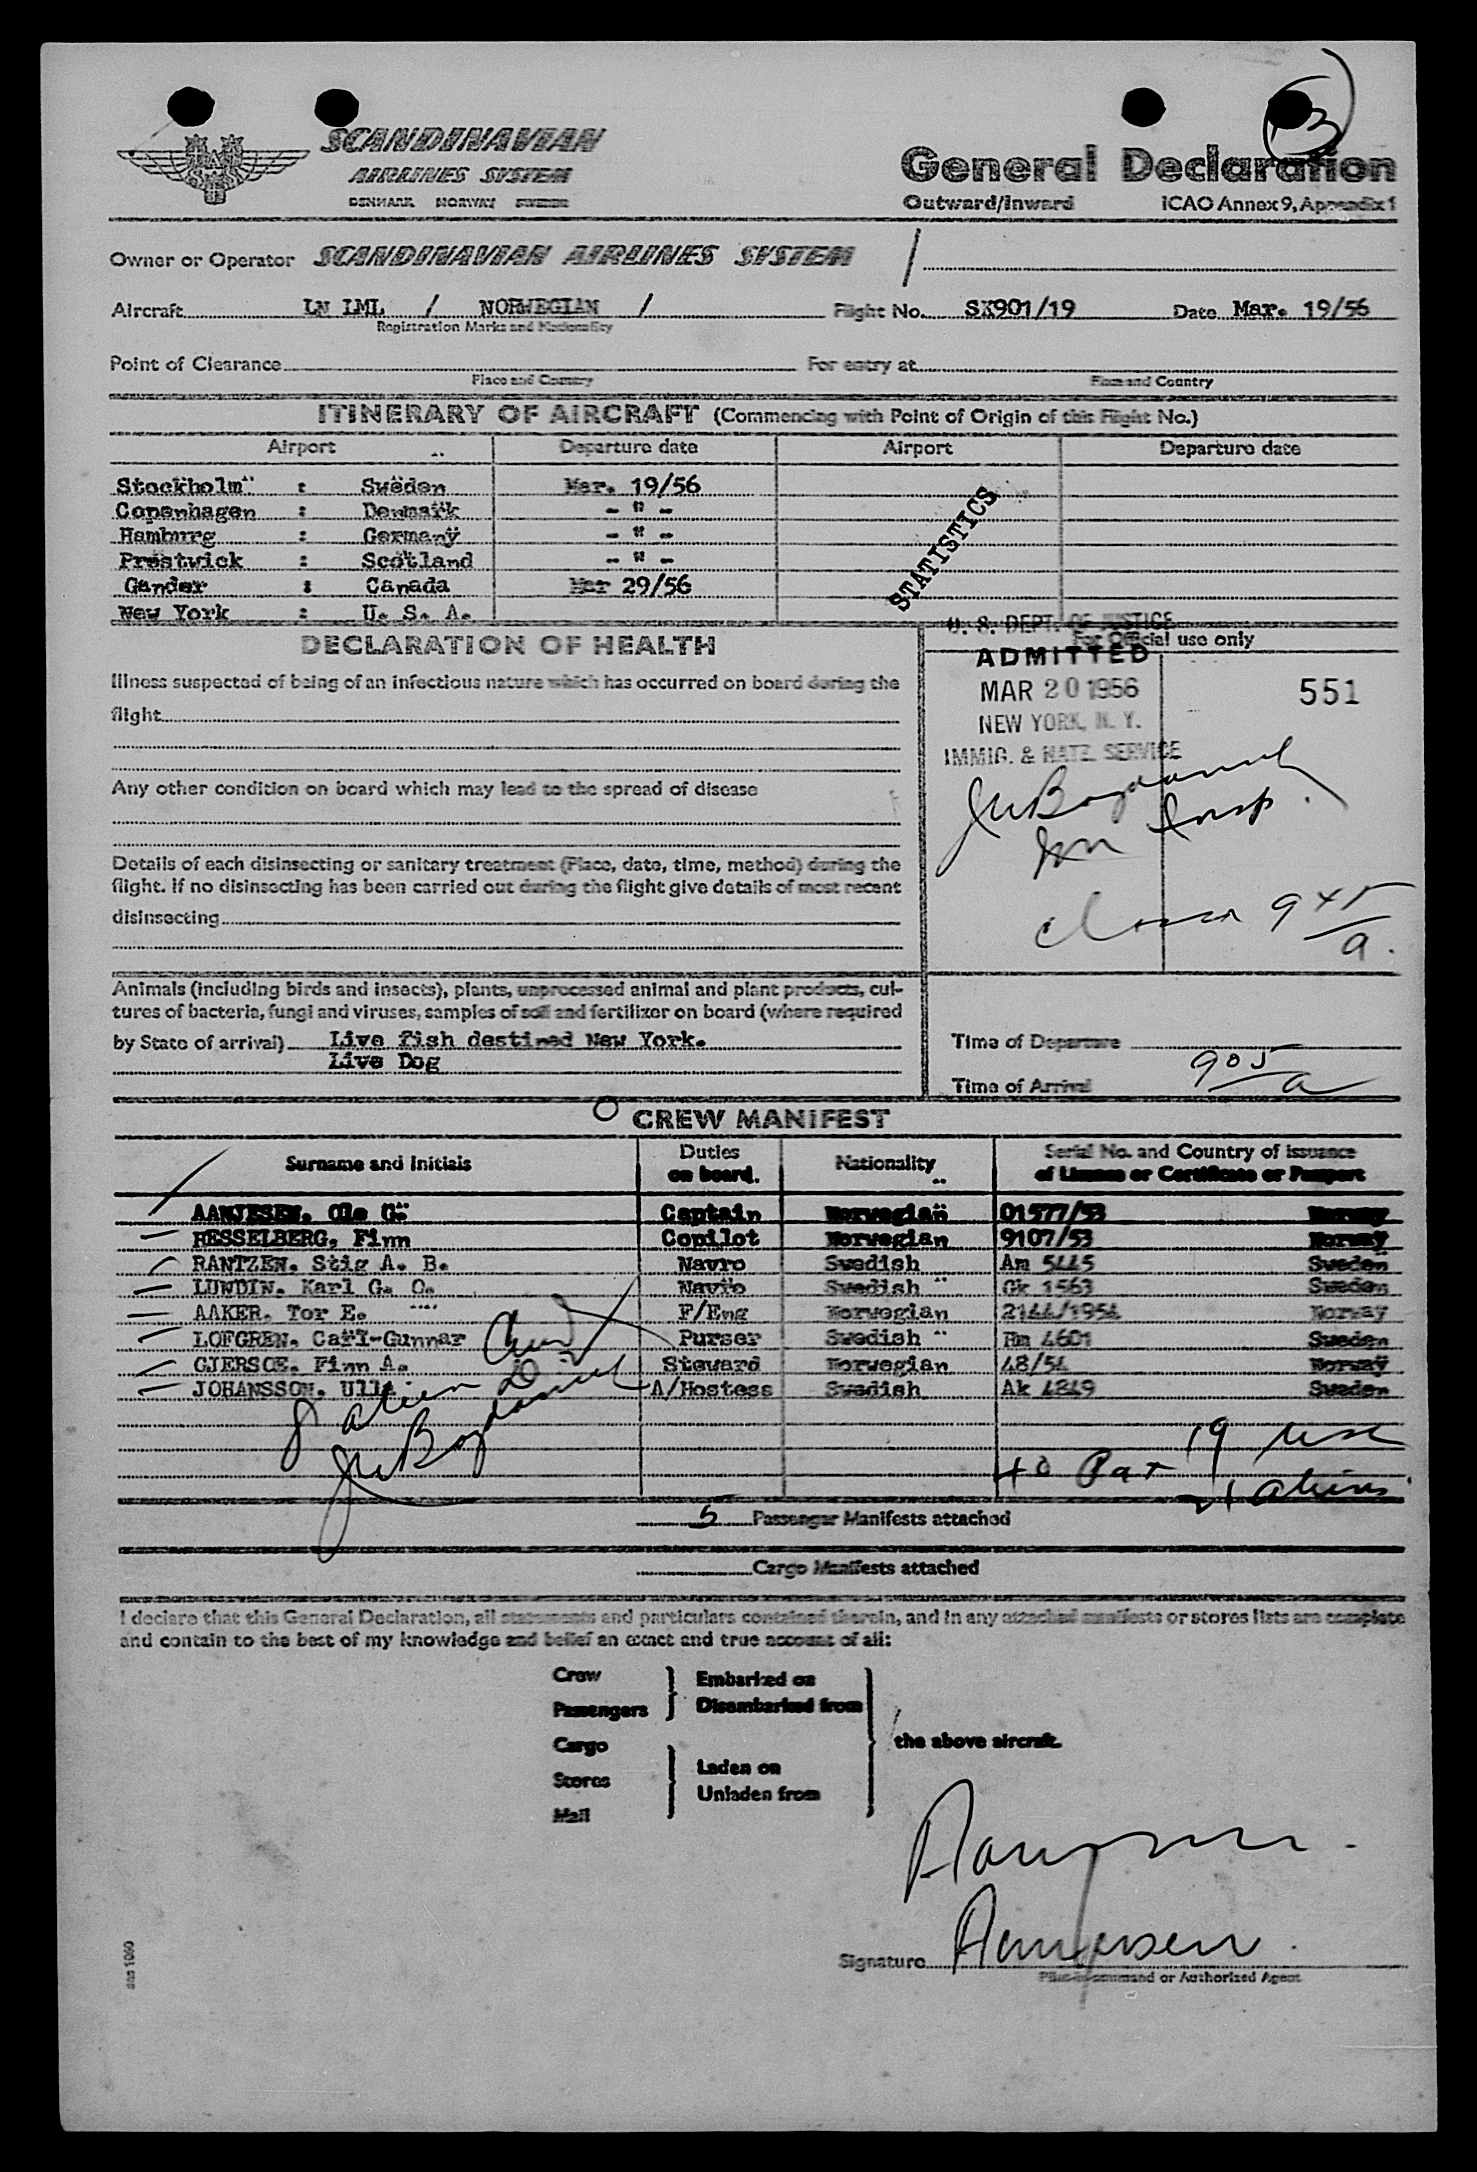 SCANDINAVIAN
AIRLINES SYSTEM
DENMARK NORWAY SWEDEN
3
General Declaration
Outward/Inward ICAO Annex 9, Appendix 1
Owner or Operator SCANDINAVIAN AIRLINES SYSTEM /
Aircraft LN LML / NORWEGIAN / Flight No. SK901/19 Date Mar. 19/56
Registration Marks and Nationality
Point of Clearance For entry at
Place and Country Place and Country
ITINERARY OF AIRCRAFT (Commencing with Point of Origin of this Flight No.)
Airport Departure date Airport Departure date
Stockholm : Sweden Mar. 19/56
Copenhagen : Denmark - " -
Hamburg : Germany - " -
Prestwick : Scotland - " -
Gander : Canada Mar 29/56
New York : U. S. A.
STATISTICS
DECLARATION OF HEALTH
For Official use only
U. S. DEPT. OF JUSTICE
ADMITTED
MAR 20 1956
NEW YORK, N. Y.
IMMIG. & NATZ. SERVICE
551
Illness suspected of being of an infectious nature which has occurred on board during the
flight
Any other condition on board which may lead to the spread of disease
Imm Insp.
Details of each disinsecting or sanitary treatment (Place, date, time, method) during the
flight. If no disinsecting has been carried out during the flight give details of most recent
disinsecting
Animals (including birds and insects), plants, unprocessed animal and plant products, cul-
tures of bacteria, fungi and viruses, samples of soil and fertilizer on board (where required
by State of arrival) Live fish destined New York.
Live Dog
Time of Departure
Time of Arrival 905 a
CREW MANIFEST
Surname and Initials Duties on board. Nationality Serial No. and Country of issuance of License or Certificate or Passport
AANJESEN. Ole G. Captain Norwegian 01577/53 Norway
HESSELBERG, Finn Copilot Norwegian 9107/53 Norway
RANTZEN. Stig A. B. Navro Swedish Am 5445 Sweden
LUNDIN. Karl G. O. Navro Swedish Gk 1563 Sweden
AAKER. Tor E. F/Eng Norwegian 2144/1954 Norway
LOFGREN. Carl-Gunnar Purser Swedish Rm 4601 Sweden
GJERSOE. Finn A. Steward Norwegian 48/54 Norway
JOHANSSON. Ulla A/Hostess Swedish Ak 4849 Sweden
19 USC
40 Pax 21 aliens
5 Passenger Manifests attached
Cargo Manifests attached
I declare that this General Declaration, all statements and particulars contained therein, and in any attached manifests or stores lists are complete
and contain to the best of my knowledge and belief an exact and true account of all:
Crew
Passengers
Embarked on
Disembarked from
Cargo
Stores
Mail
Laden on
Unladen from
the above aircraft.
Aanjesen.
Signature Aanjesen.
Pilot-in-command or Authorized Agent
sas 1060